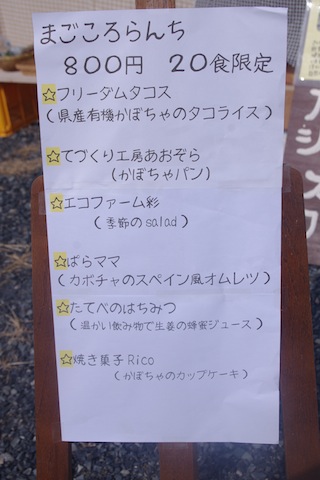 まごころらんち
800円 20食限定
☆フリーダムタコス
(県産有機かぼちゃのタコライス)
☆てづくり工房あおぞら
(かぼちゃパン)
☆エコファーム彩
(季節のsalad)
☆ばらママ
(カボチャのスペイン風オムレツ)
☆たてべのはちみつ
(温かい飲み物で生姜の蜂蜜ジュース)
☆焼き菓子Rico
(かぼちゃのカップケーキ)